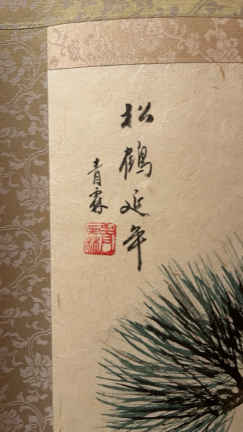 松鶴延年
青霖